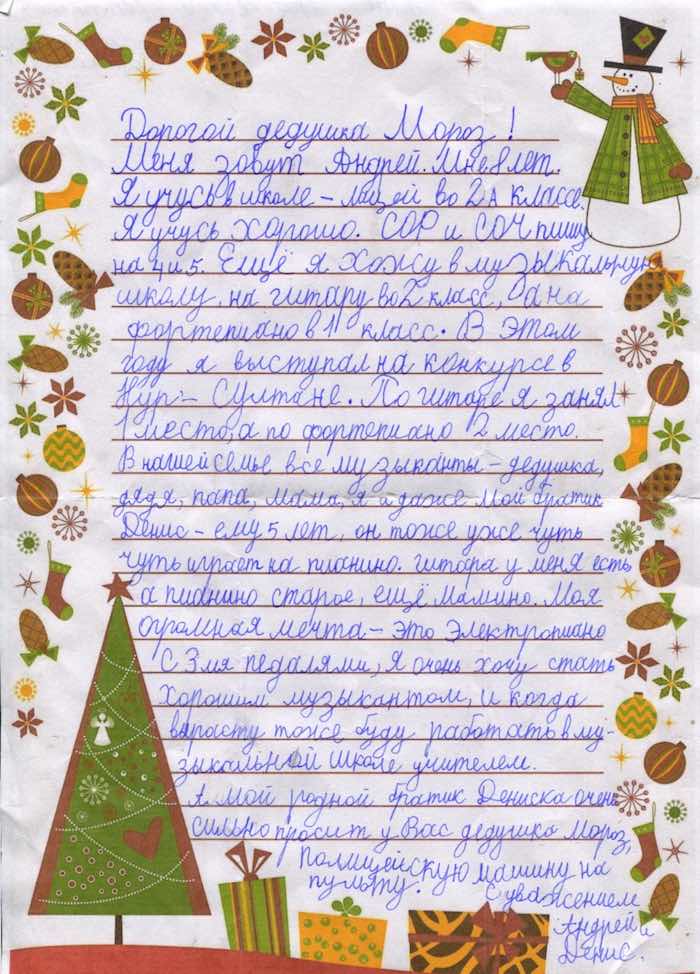 Дорогой дедушка Мороз!
Меня зовут Андрей. Мне 8 лет.
Я учусь в школе - лицей во 2А классе.
Я учусь хорошо. СОР и СОЧ пишу
на 4 и 5. Ещё я хожу в музыкальную
школу, на гитару во 2 класс, а на
фортепиано в 1 класс. В этом
году я выступал на конкурсе в
Нур - Султане. По гитаре я занял
1 место, а по фортепиано 2 место.
В нашей семье все музыканты - дедушка,
дядя, папа, мама, я и даже мой братик
Денис - ему 5 лет, он тоже уже чуть
чуть играет на пианино. Гитара у меня есть
а пианино старое, ещё мамино. Моя
огромная мечта - это электропиано
с 3мя педалями, я очень хочу стать
хорошим музыкантом, и когда
вырасту тоже буду работать в му-
зыкальной школе учителем.
А мой родной братик Дениска очень
сильно просит у Вас дедушка Мороз,
полицейскую машину на
пульту.
С уважением
Андрей и
Денис.